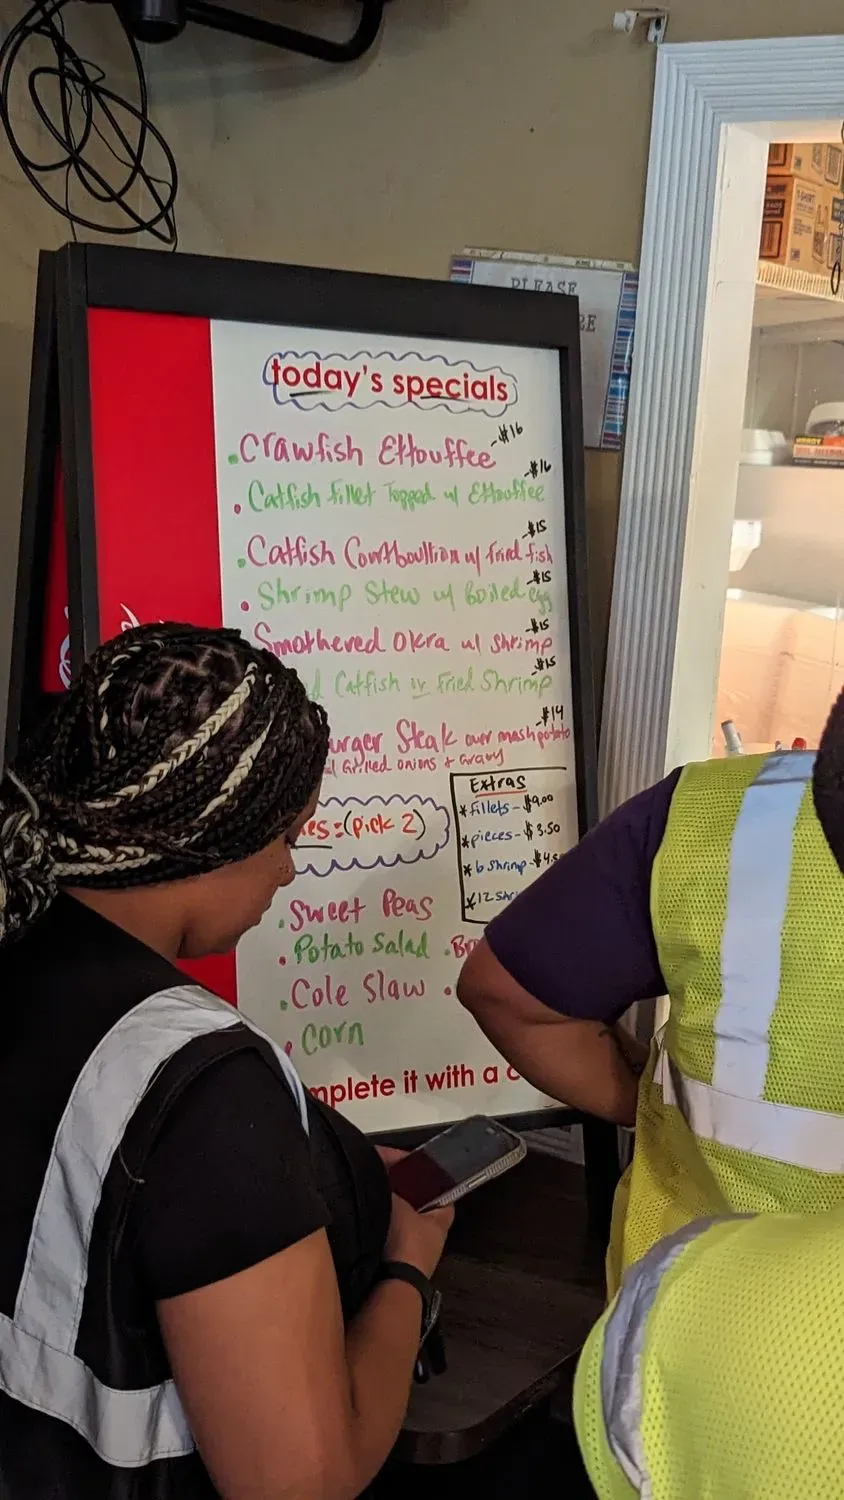 PLEASE
today's specials
Crawfish Ettouffee -$16
Catfish fillet Topped w/ Ettouffee -$16
Catfish Courtboullion w/ fried fish -$15
Shrimp Stew w/ Boiled egg -$15
Smothered Okra w/ Shrimp -$15
Catfish or Fried Shrimp -$15
urger Steak over mash potato -$14
Grilled onions & Gravy
Extras
*fillets - $9.00
*pieces - $3.50
*6 Shrimp - $4.5
*12 Shr
es: (Pick 2)
Sweet Peas
Potato Salad
Cole Slaw
Corn
mplete it with a c